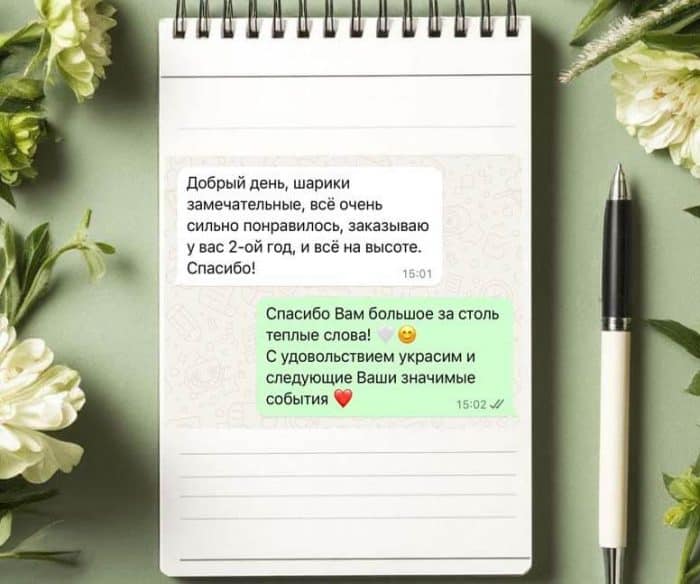 Добрый день, шарики
замечательные, всё очень
сильно понравилось, заказываю
у вас 2-ой год, и всё на высоте.
Спасибо!
15:01
Спасибо Вам большое за столь
теплые слова! 🤍😊
С удовольствием украсим и
следующие Ваши значимые
события ❤️
15:02